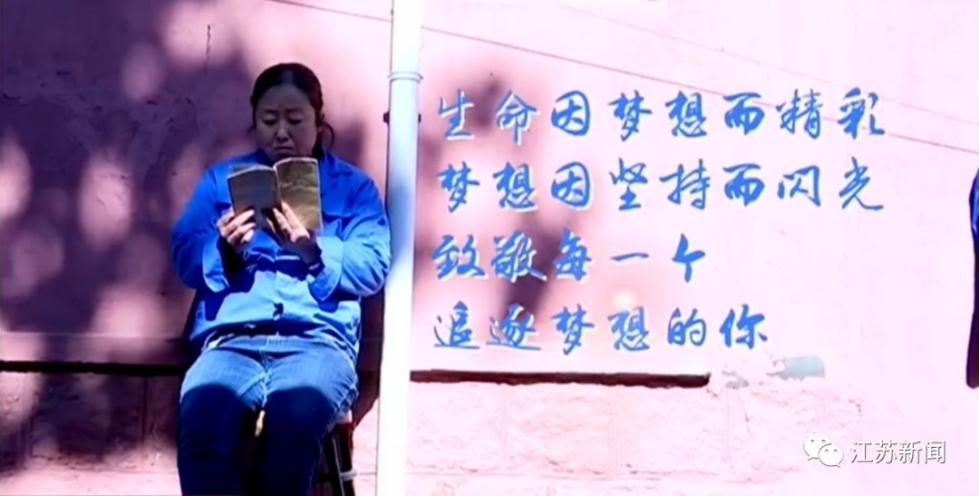 生命因梦想而精彩
梦想因坚持而闪光
致敬每一个
追逐梦想的你
江苏新闻